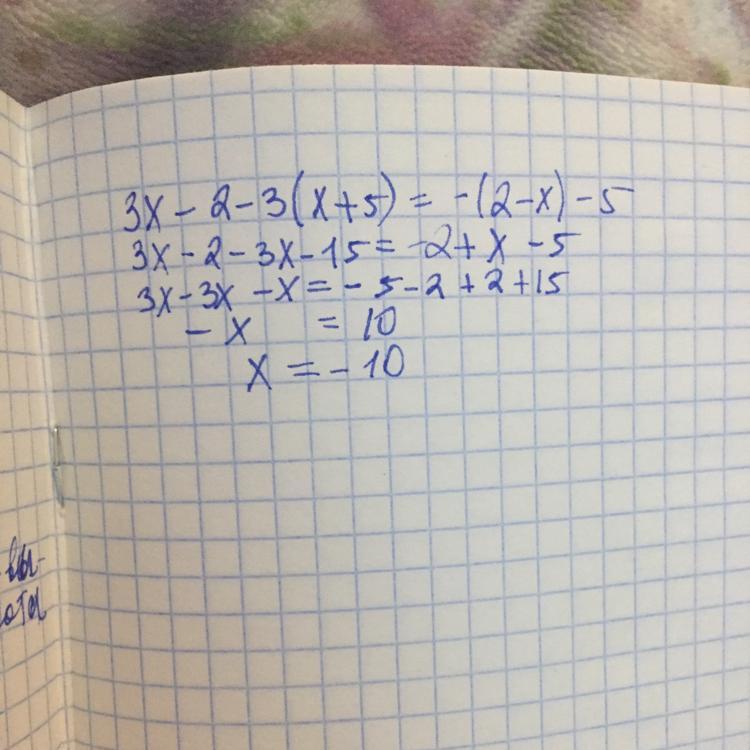 3x - 2 - 3(x+5) = -(2-x) - 5
3x - 2 - 3x - 15 = -2 + x - 5
3x - 3x - x = - 5 - 2 + 2 + 15
- x = 10
x = - 10